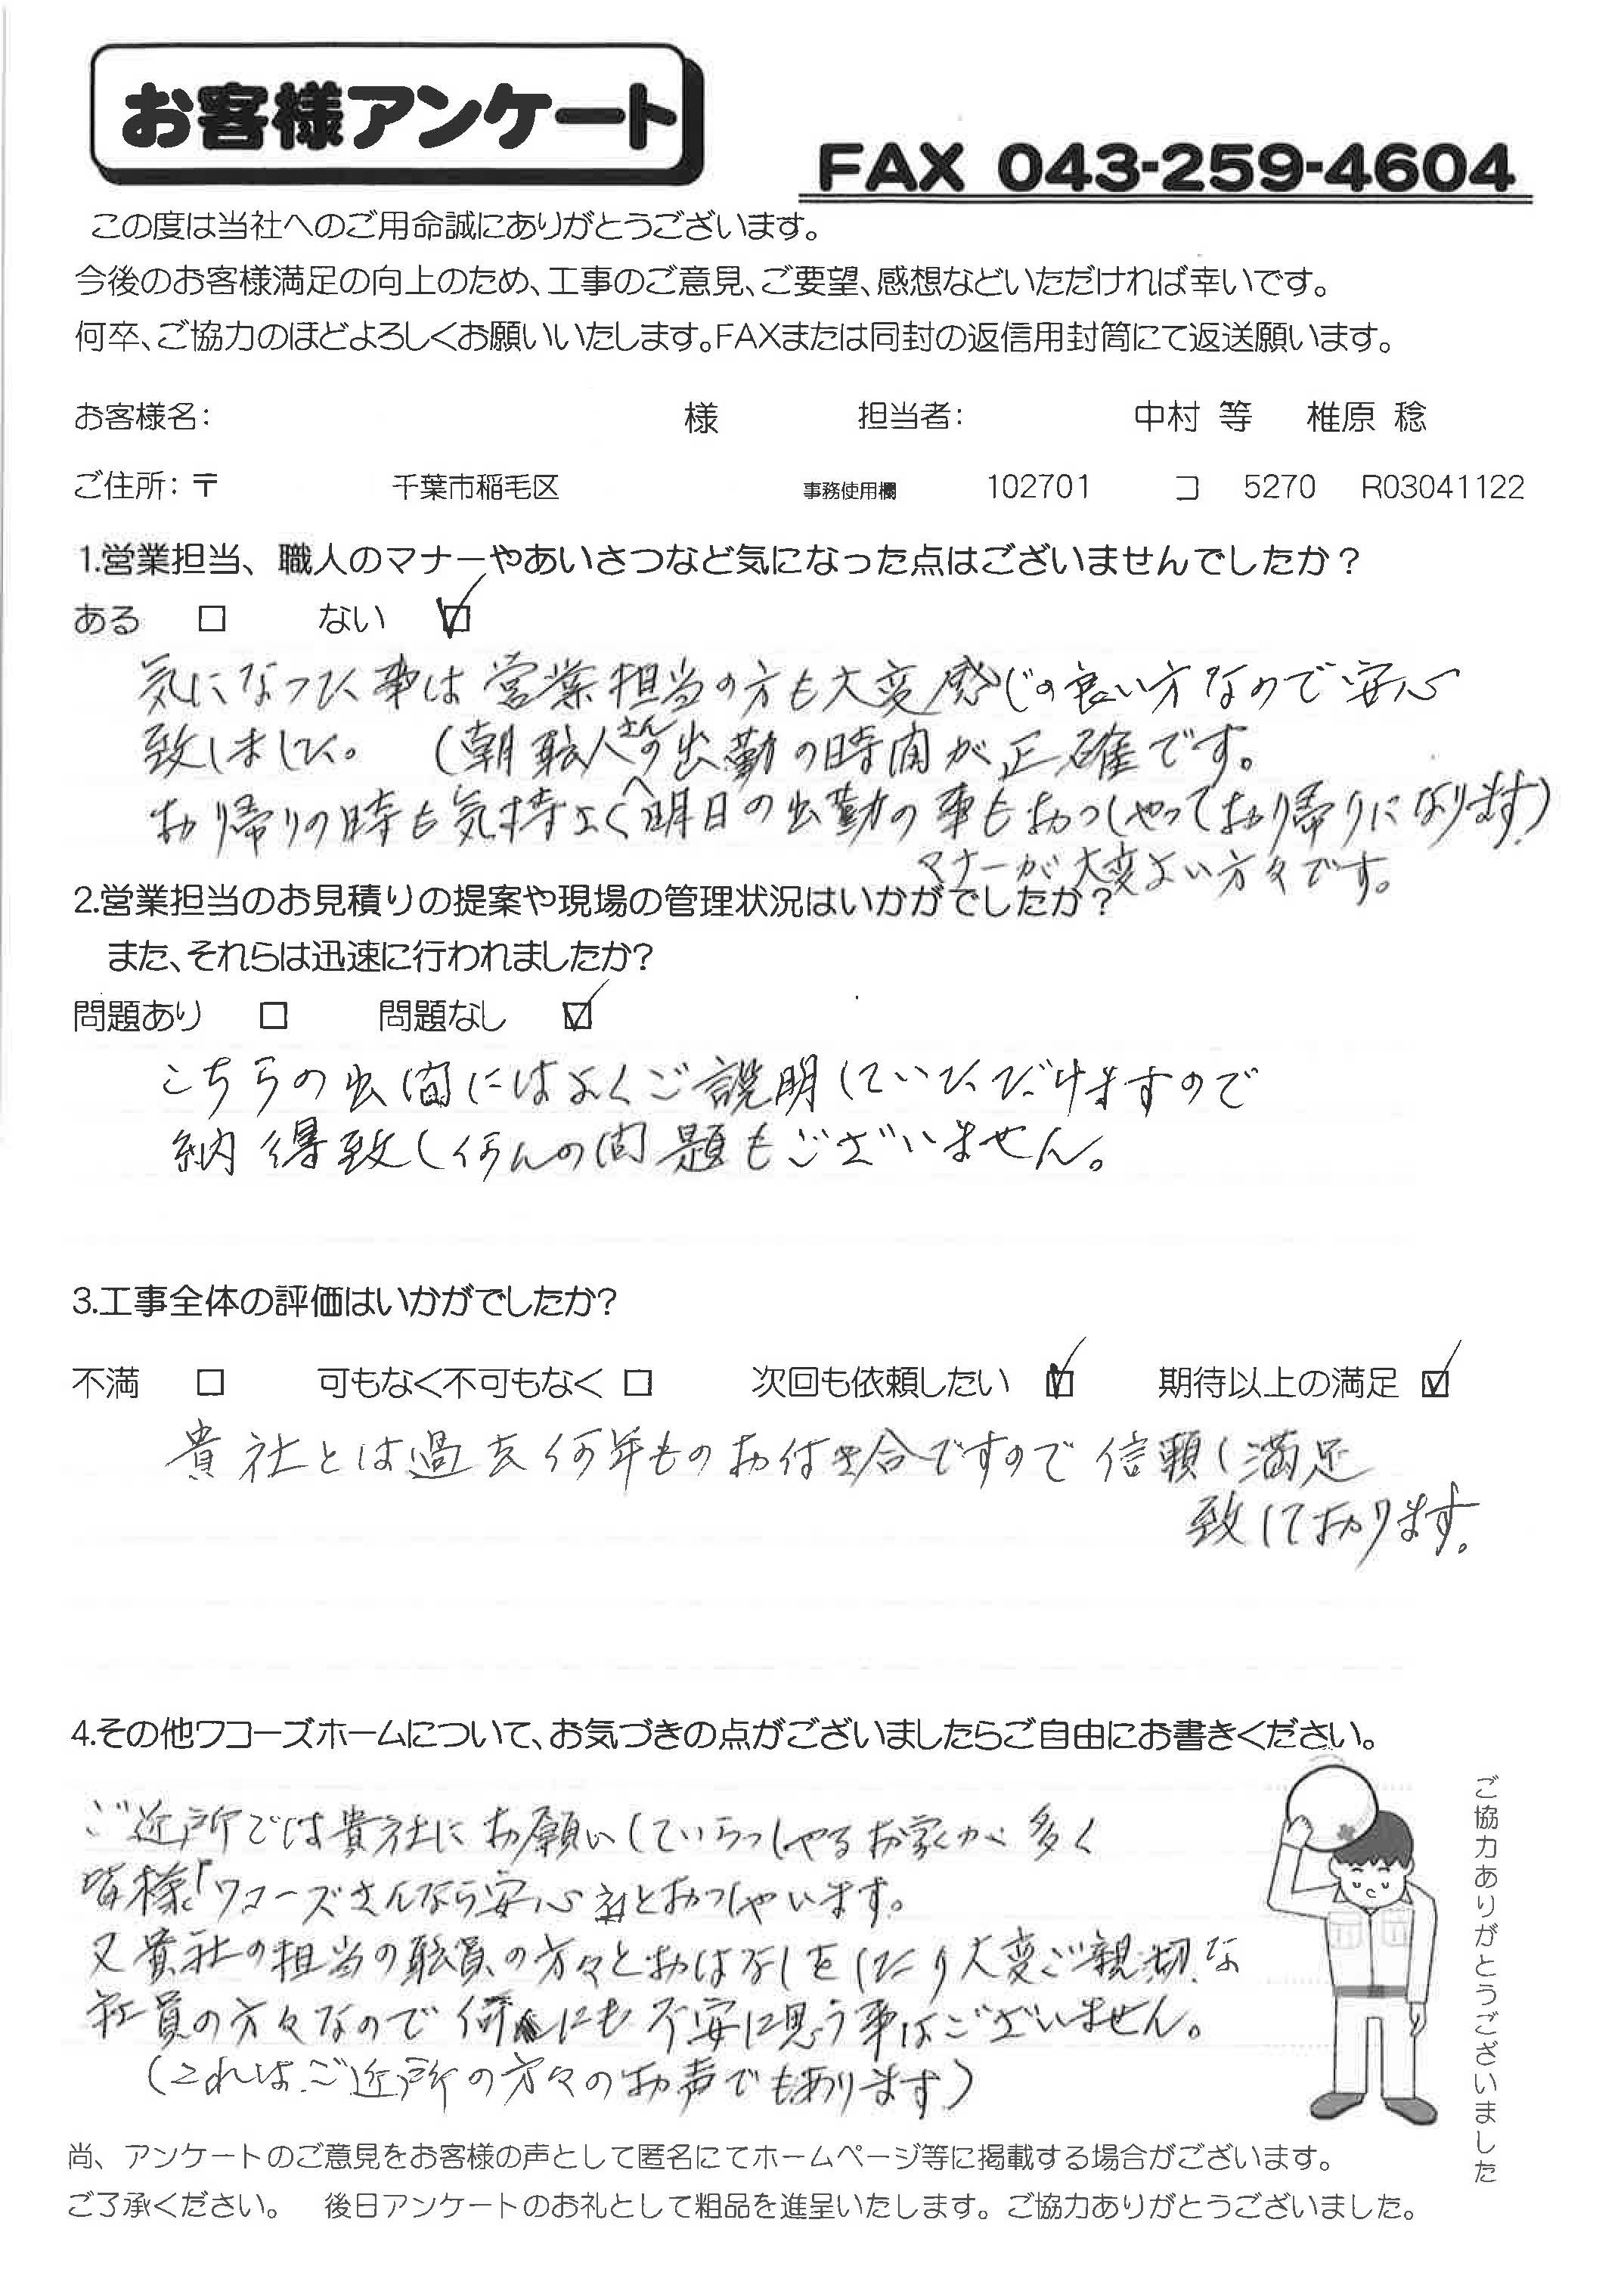 お客様アンケート
FAX 043-259-4604
この度は当社へのご用命誠にありがとうございます。
今後のお客様満足の向上のため、工事のご意見、ご要望、感想などいただければ幸いです。
何卒、ご協力のほどよろしくお願いいたします。FAXまたは同封の返信用封筒にて返送願います。
お客様名: 様 担当者: 中村 等 椎原 稔
ご住所: 〒 千葉市稲毛区 事務使用欄 102701 コ 5270 R03041122
1.営業担当、職人のマナーやあいさつなど気になった点はございませんでしたか？
ある □ ない ☑
気になった事は営業担当の方も大変感じの良い方なので安心
致しました。 (朝職人さんの出勤の時間が正確です。
お帰りの時も気持よく明日の出勤の事もおっしゃってお帰りになります)
マナーが大変よい方々です。
2.営業担当のお見積りの提案や現場の管理状況はいかがでしたか？
また、それらは迅速に行われましたか?
問題あり □ 問題なし ☑
こちらの出間にはよくご説明していただけますので
納得致し何んの問題もございません。
3.工事全体の評価はいかがでしたか?
不満 □ 可もなく不可もなく □ 次回も依頼したい ☑ 期待以上の満足 ☑
貴社とは過去何年ものお付き合ですので信頼し満足
致しております。
4.その他ワコーズホームについて、お気づきの点がございましたらご自由にお書きください。
ご近所では貴社にお願いしていらっしゃるお家が多く
皆様「ワコーズさんなら安心 とおっしゃいます。
又貴社の担当の職員の方々とおはなしをしたり大変ご親切な
社員の方々なので何にも不安に思う事はございません。
(これはご近所の方々のお声でもあります)
ご協力ありがとうございました
尚、アンケートのご意見をお客様の声として匿名にてホームページ等に掲載する場合がございます。
ご了承ください。 後日アンケートのお礼として粗品を進呈いたします。ご協力ありがとうございました。